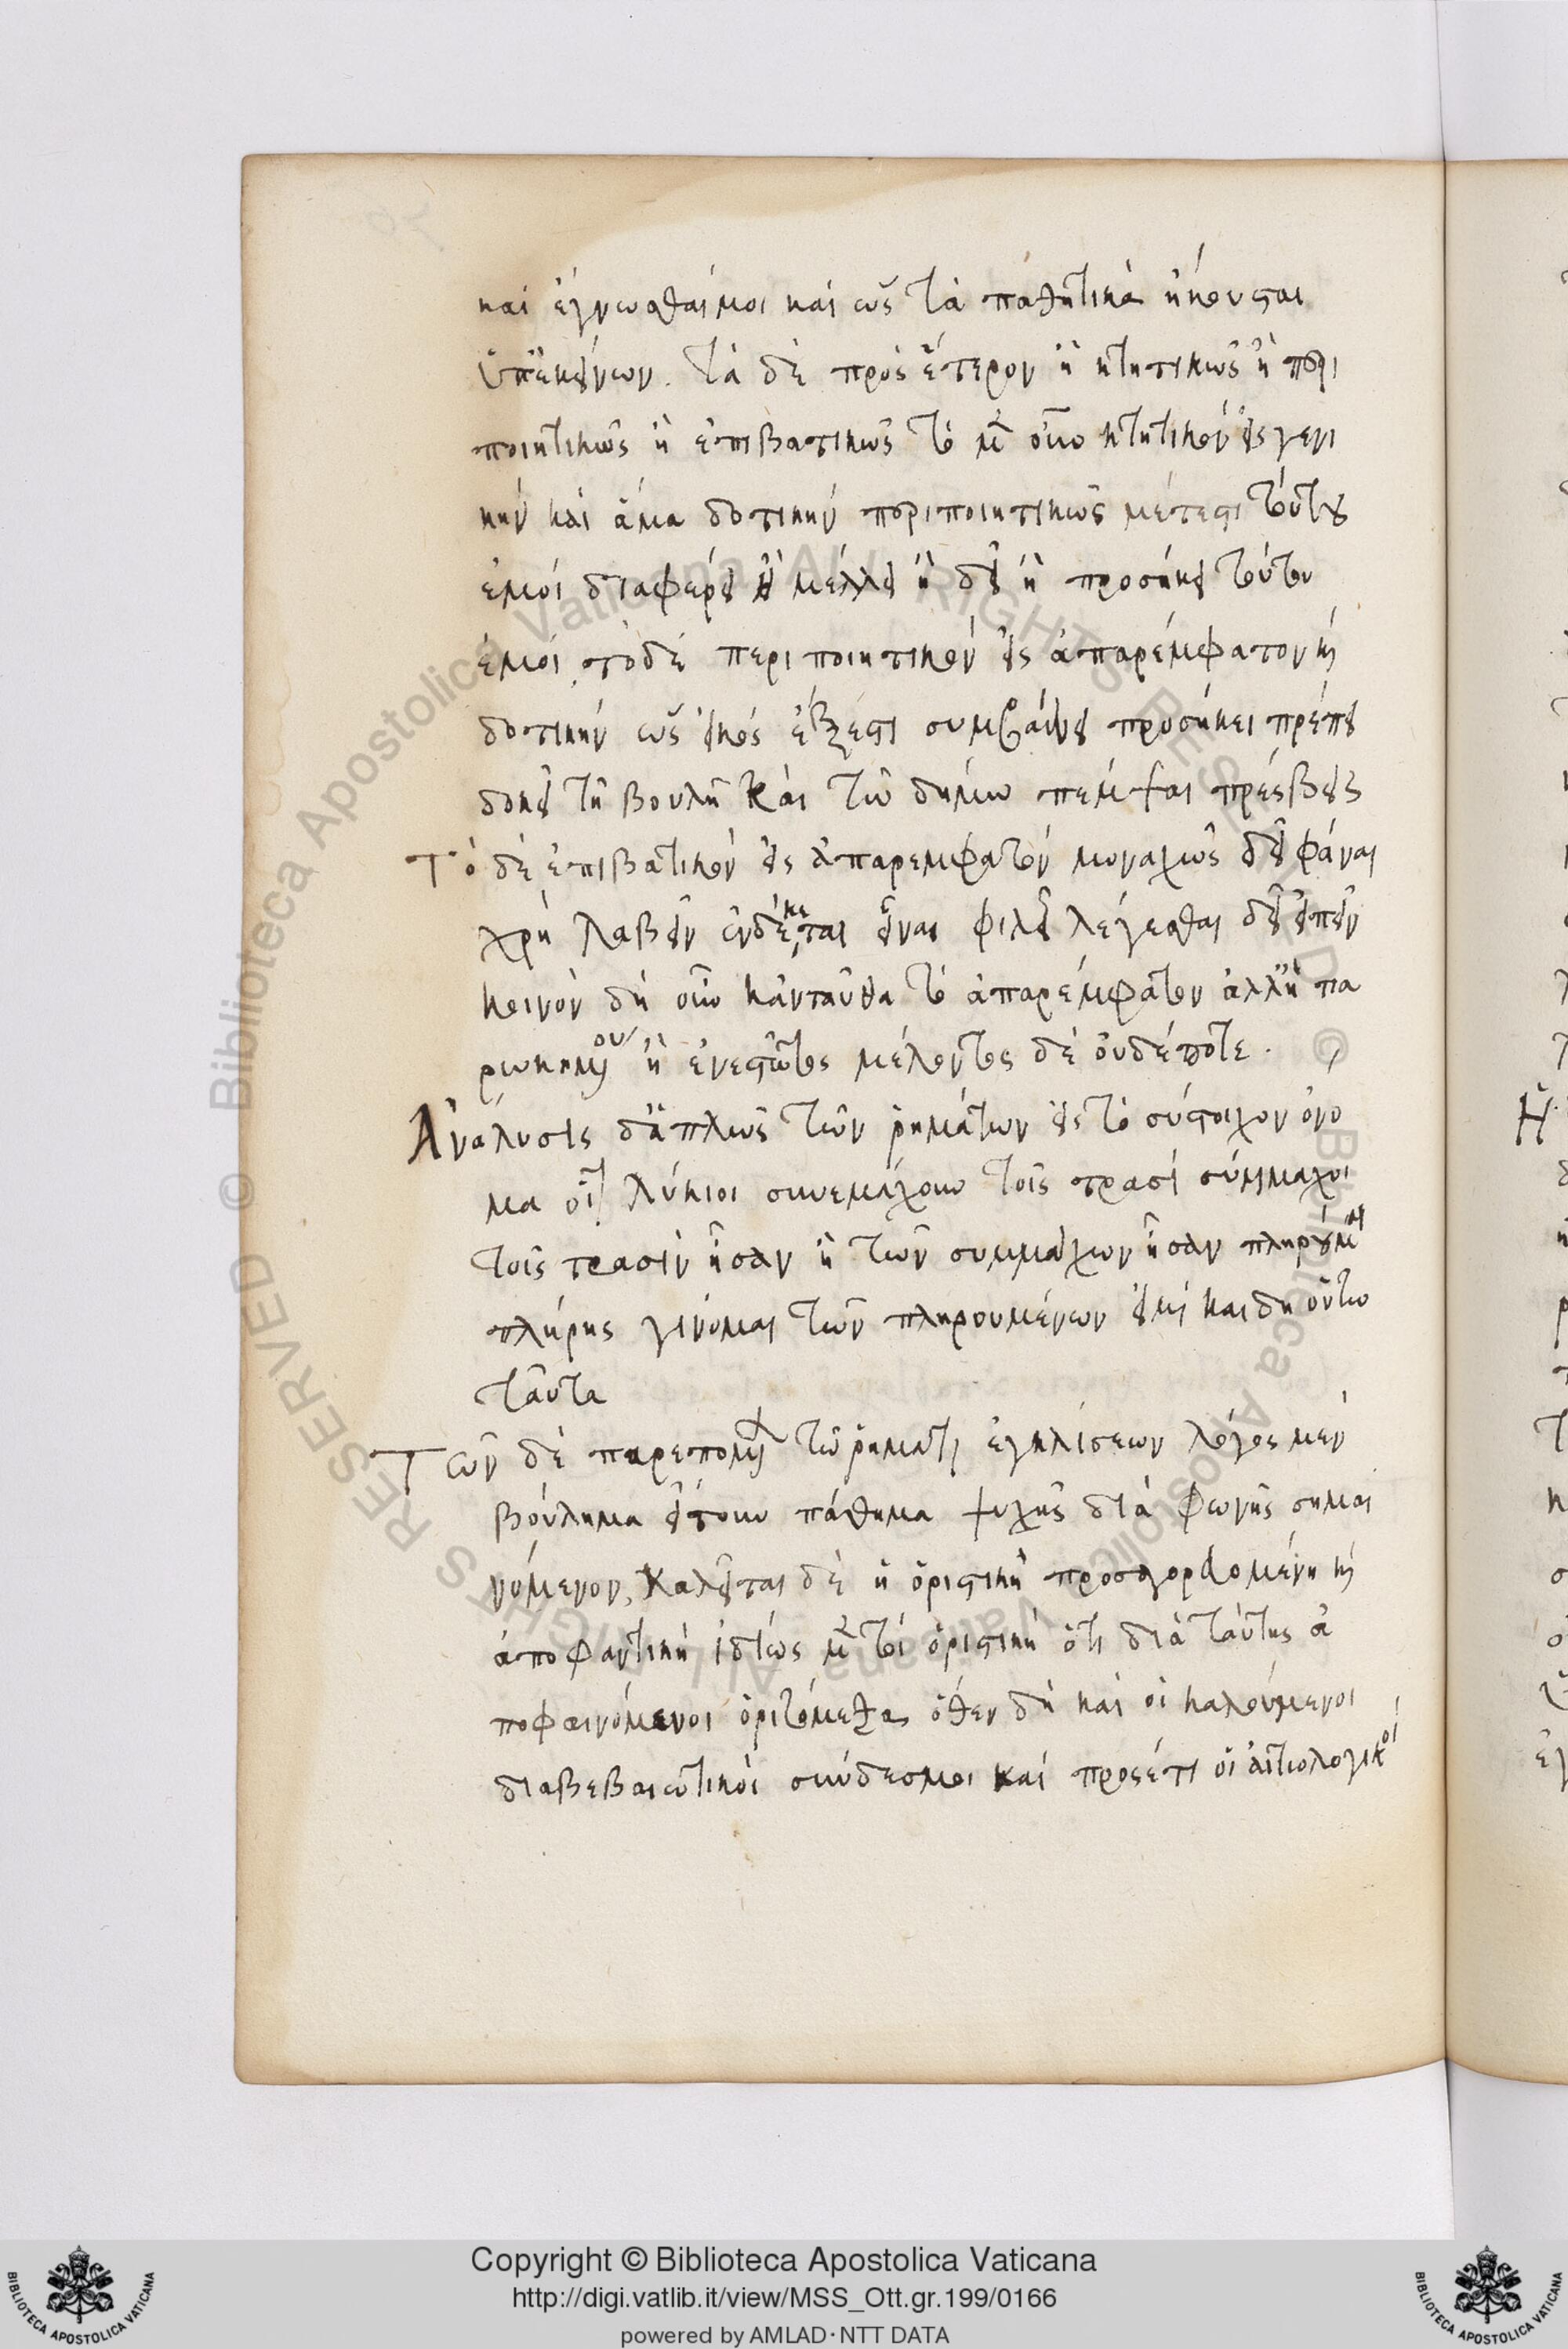 καὶ ἐγνῶσθαί μοι καὶ ὡς τὰ παθητικὰ ἤκουσται
ὑπ' ἐκείνων. τὰ δὲ πρὸς ἕτερον ἢ κτητικῶς ἢ περι
ποιητικῶς ἢ ἐπιβατικῶς τὸ μὲν οὖν κτητικὸν εἰς γενι
κὴν καὶ ἅμα δοτικὴν περιποιητικῶς μέτεστι τούτου
ἐμοὶ διαφέρει ἢ μέλλει ἢ δεῖ ἢ προσήκει τούτου
ἐμοί, τὸ δὲ περιποιητικὸν εἰς ἀπαρέμφατον καὶ
δοτικὴν ὡς εἰκὸς ἔξεστι συμβαίνει προσήκει πρέπει
δοκεῖ τῇ βουλῇ καὶ τῷ δήμῳ πέμψαι πρέσβεις
Τὸ δὲ ἐπιβατικὸν εἰς ἀπαρέμφατον μοναχῶς δεῖ φάναι
χρὴ λαβεῖν ἐνδέκεται εἶναι φιλεῖ λέγεσθαι δεῖ εἰπεῖν
κοινὸν δὴ οὖν κἀνταῦθα τὸ ἀπαρέμφατον ἀλλ' ἢ πα
ρωκημένου ἢ ἐνεστῶτος μέλοντος δὲ οὐδέποτε.
Ἀνάλυσις δ' ἁπλῶς τῶν ῥημάτων εἰς τὸ σύστοιχον ὄνο
μα οἷον λύκιοι συνεμάχουν τοῖς τρασὶ σύμμαχοι
τοῖς τρασὶν ἦσαν ἢ τῶν συμμάχων ἦσαν πληροῦμαι
πλήρης γίνομαι τῶν πληρουμένων εἰμὶ καὶ δὴ οὕτω
ταῦτα
Τῶν δὲ παρεπομένων τῷ ῥήματι ἐγκλίσεων λόγος μὲν
βούλημα εἴτουν πάθημα ψυχῆς διὰ φωνῆς σημαι
νόμενον, καλεῖται δὲ ἡ ὁριστικὴ προσαγορευομένη καὶ
ἀποφαντικὴ ἰδίως μέντοι ὁριστικὴ ὅτι διὰ ταύτης ἀ
ποφαινόμενοι ὁριζόμεθα, ὅθεν δὴ καὶ οἱ καλούμενοι
διαβεβαιωτικοὶ σύνδεσμοι καὶ προσέτι οἱ αἰτιολογικοί
Copyright © Biblioteca Apostolica Vaticana
http://digi.vatlib.it/view/MSS_Ott.gr.199/0166
powered by AMLAD·NTT DATA